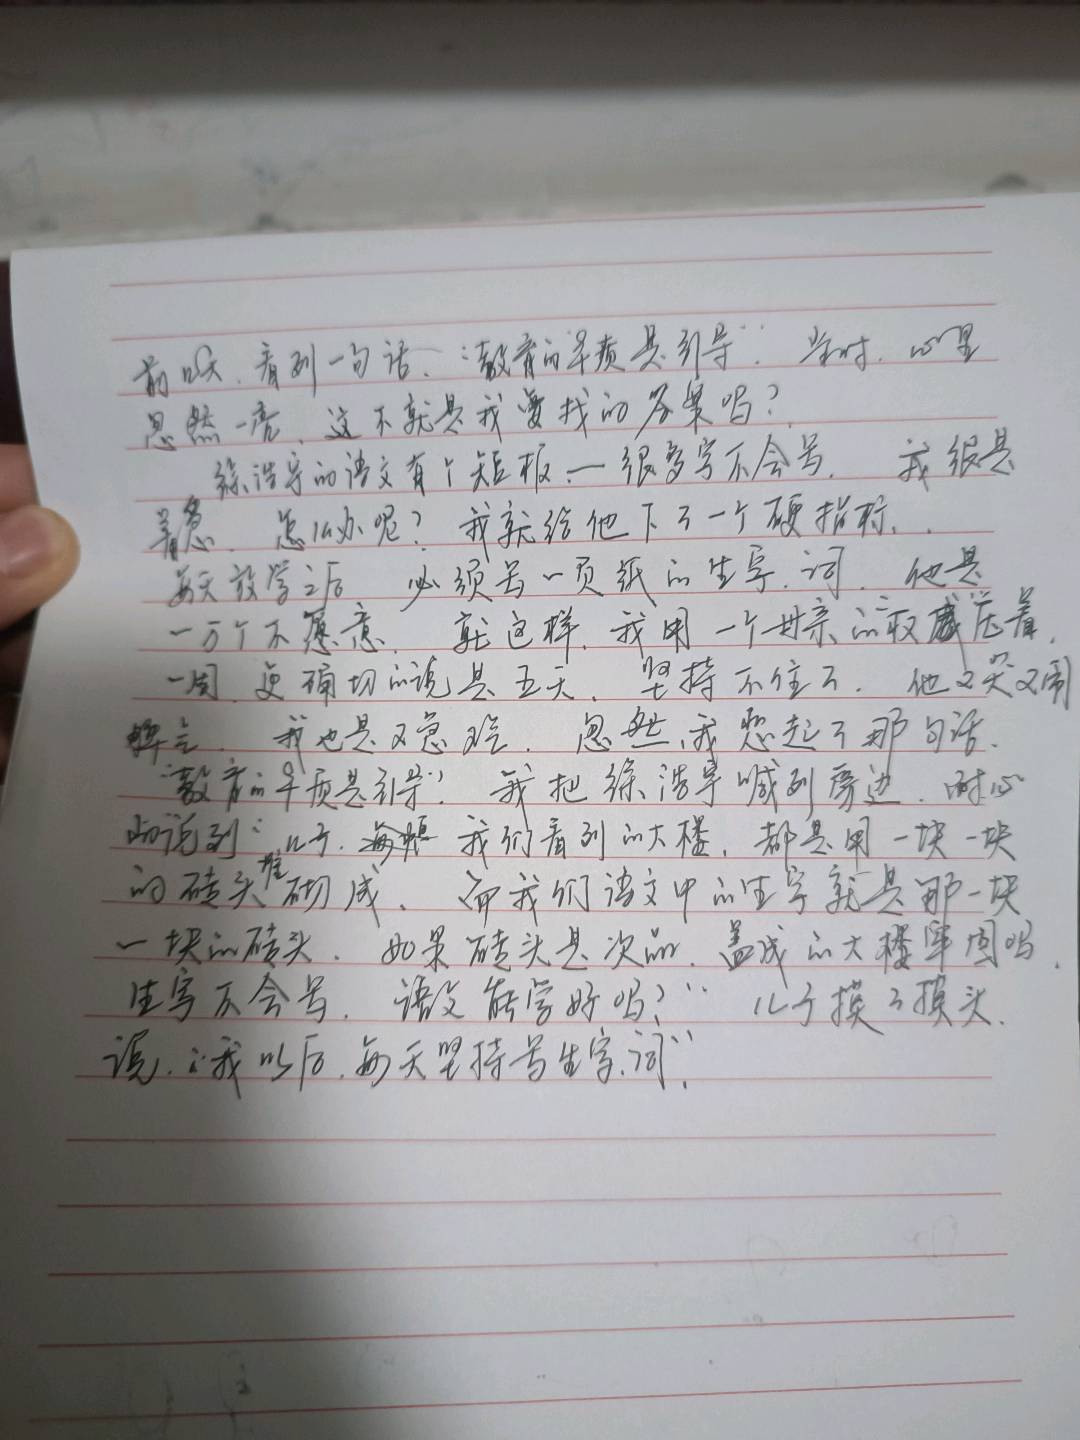 前几天,看到一句话、“教育的本质是引导”。当时,心里
忽然一亮,这不就是我要找的答案吗?
徐浩宇的语文有个短板——很多字不会写。我很是
着急,怎么办呢?我就给他下了一个硬指标,
每天放学之后,必须写一页纸的生字、词,他是
一万个不愿意,就这样,我用一个母亲的权威压着,
一周,更确切的说是五天,坚持不住了,他又哭又闹
我也是又急又气,忽然,我想起了那句话、
“教育的本质是引导”,我把徐浩宇喊到旁边,耐心
的说到“儿子,我们看到的大楼,都是用一块一块
的砖头堆砌成、而我们语文中的生字就是那一块
一块的砖头,如果砖头是次品,盖成的大楼牢固吗,
生字不会写,语文能学好吗?”儿子摸了摸头,
说,“我以后,每天坚持写生字、词”,